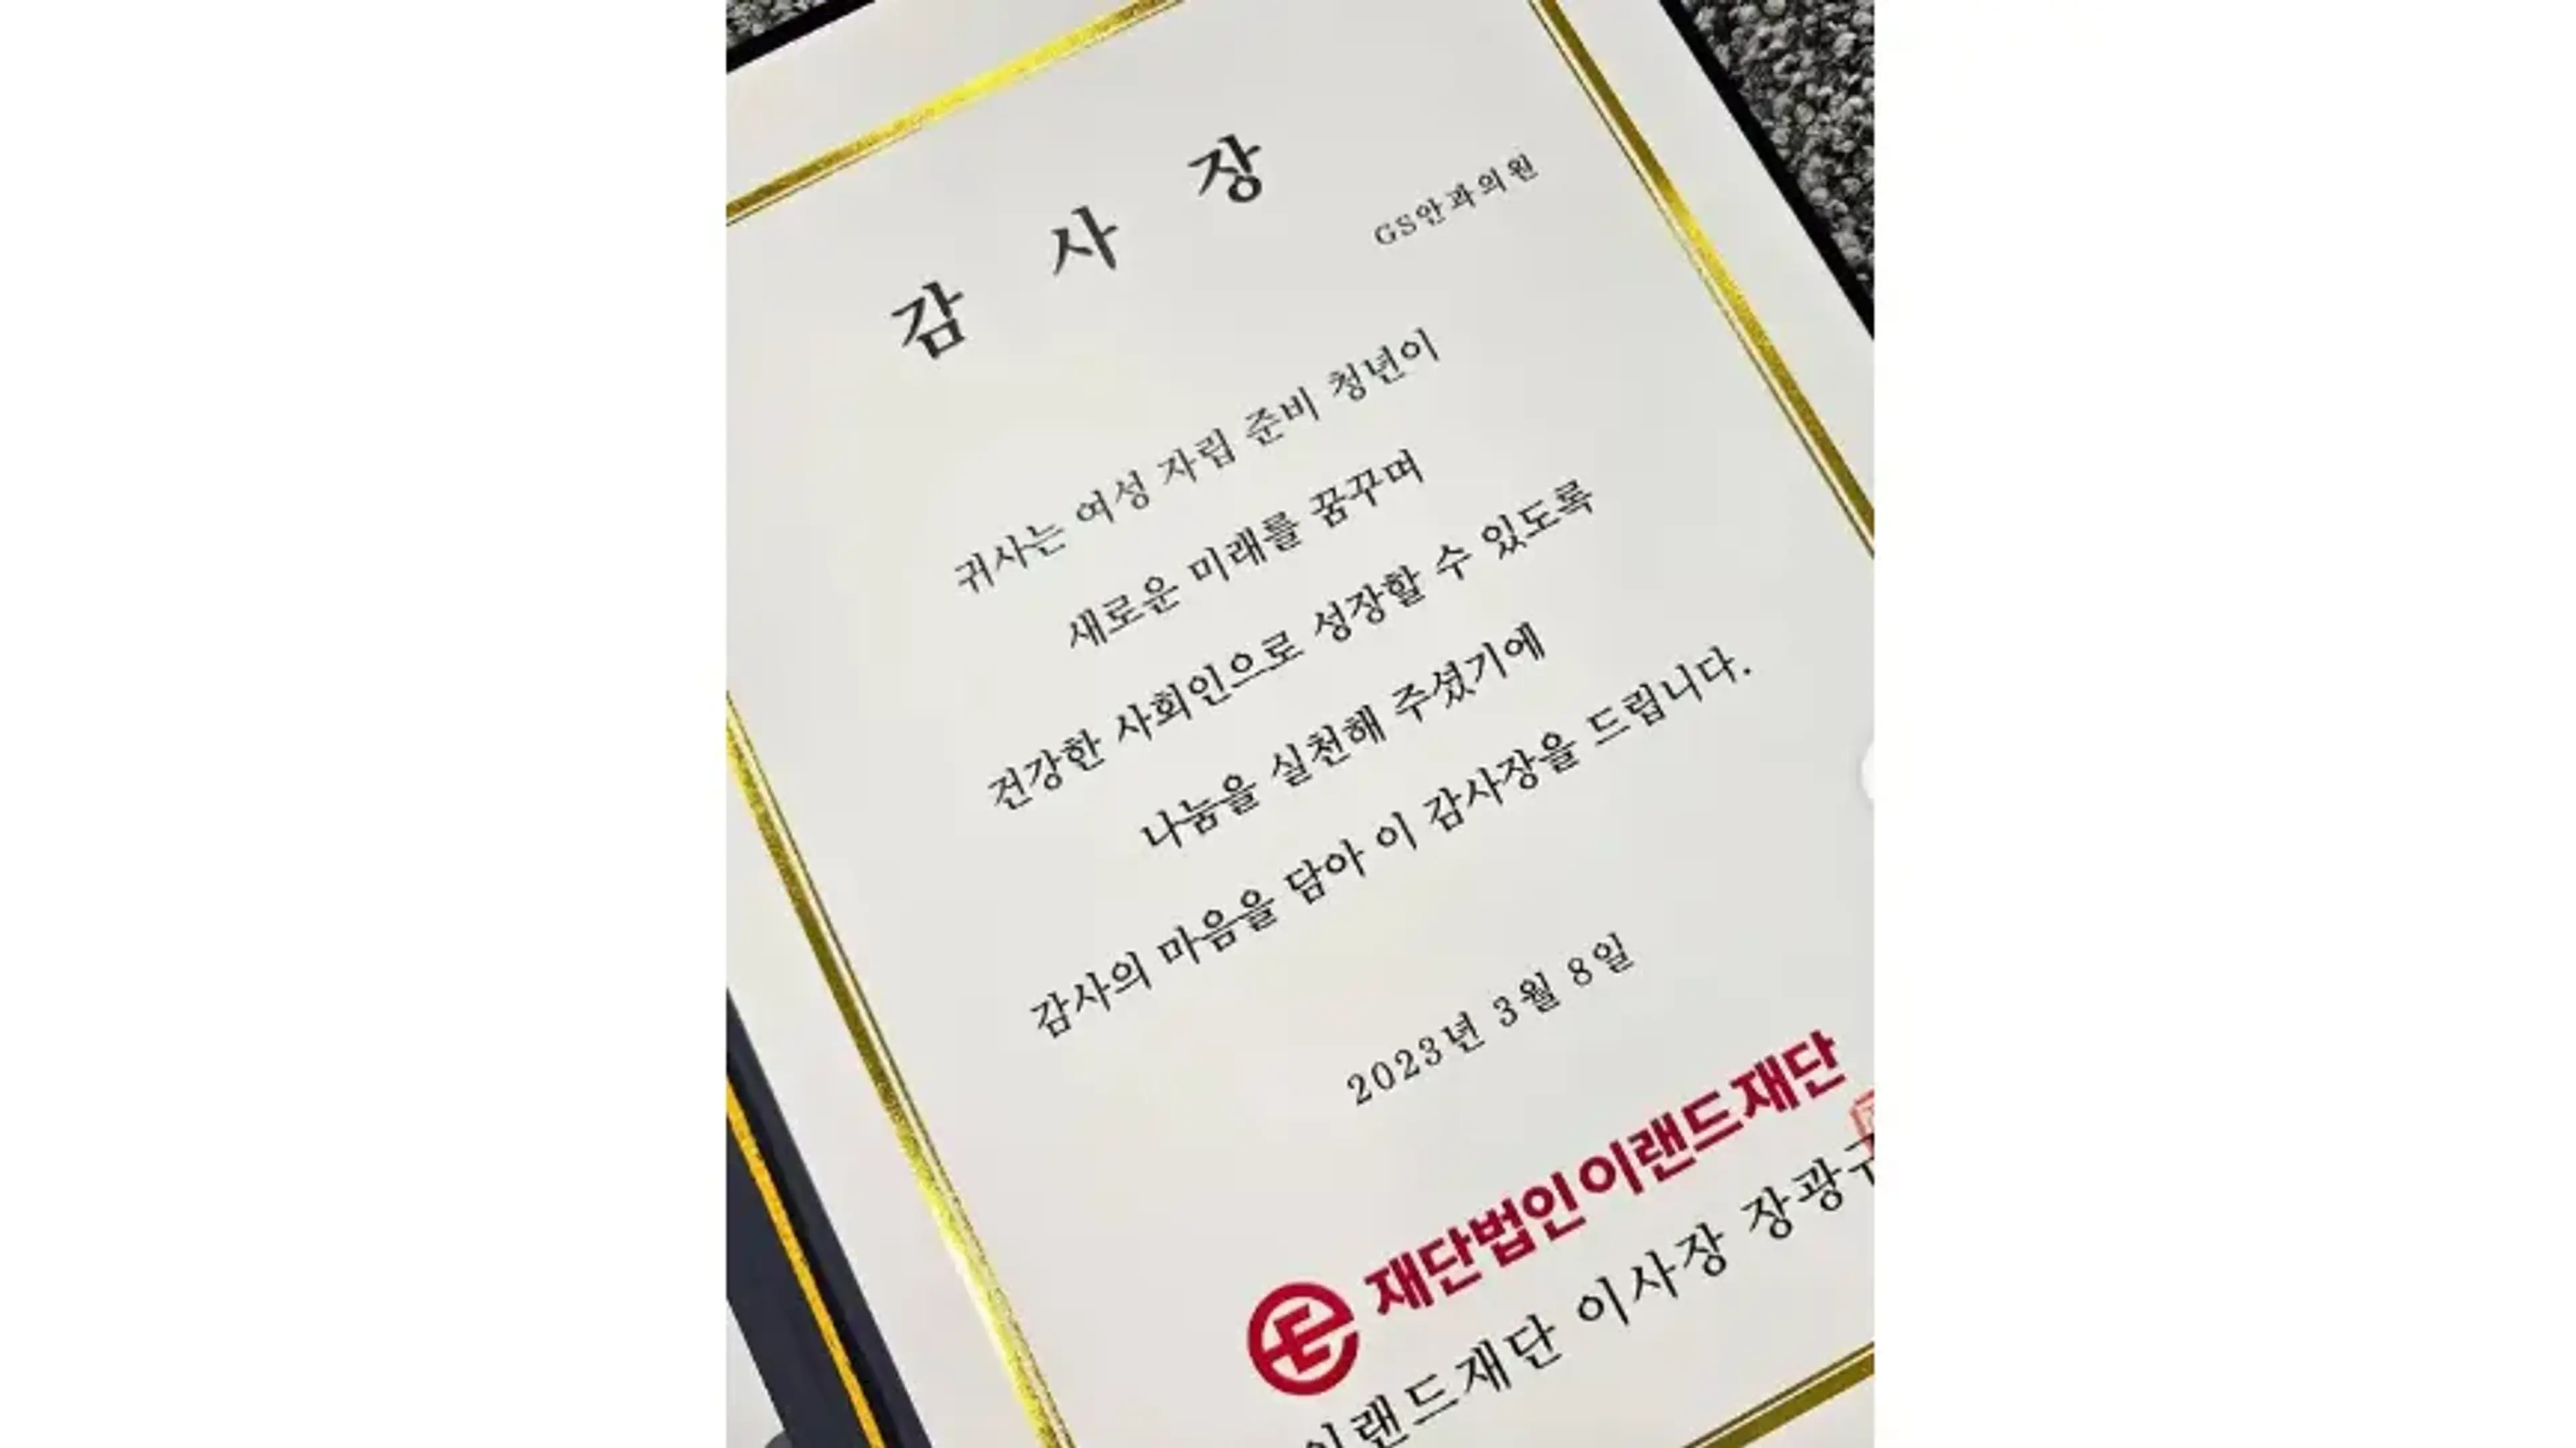 감 사 장
GS안과의원
귀사는 여성 자립 준비 청년이
새로운 미래를 꿈꾸며
건강한 사회인으로 성장할 수 있도록
나눔을 실천해 주셨기에
감사의 마음을 담아 이 감사장을 드립니다.
2023년 3월 8일
재단법인 이랜드재단
이랜드재단 이사장 장광